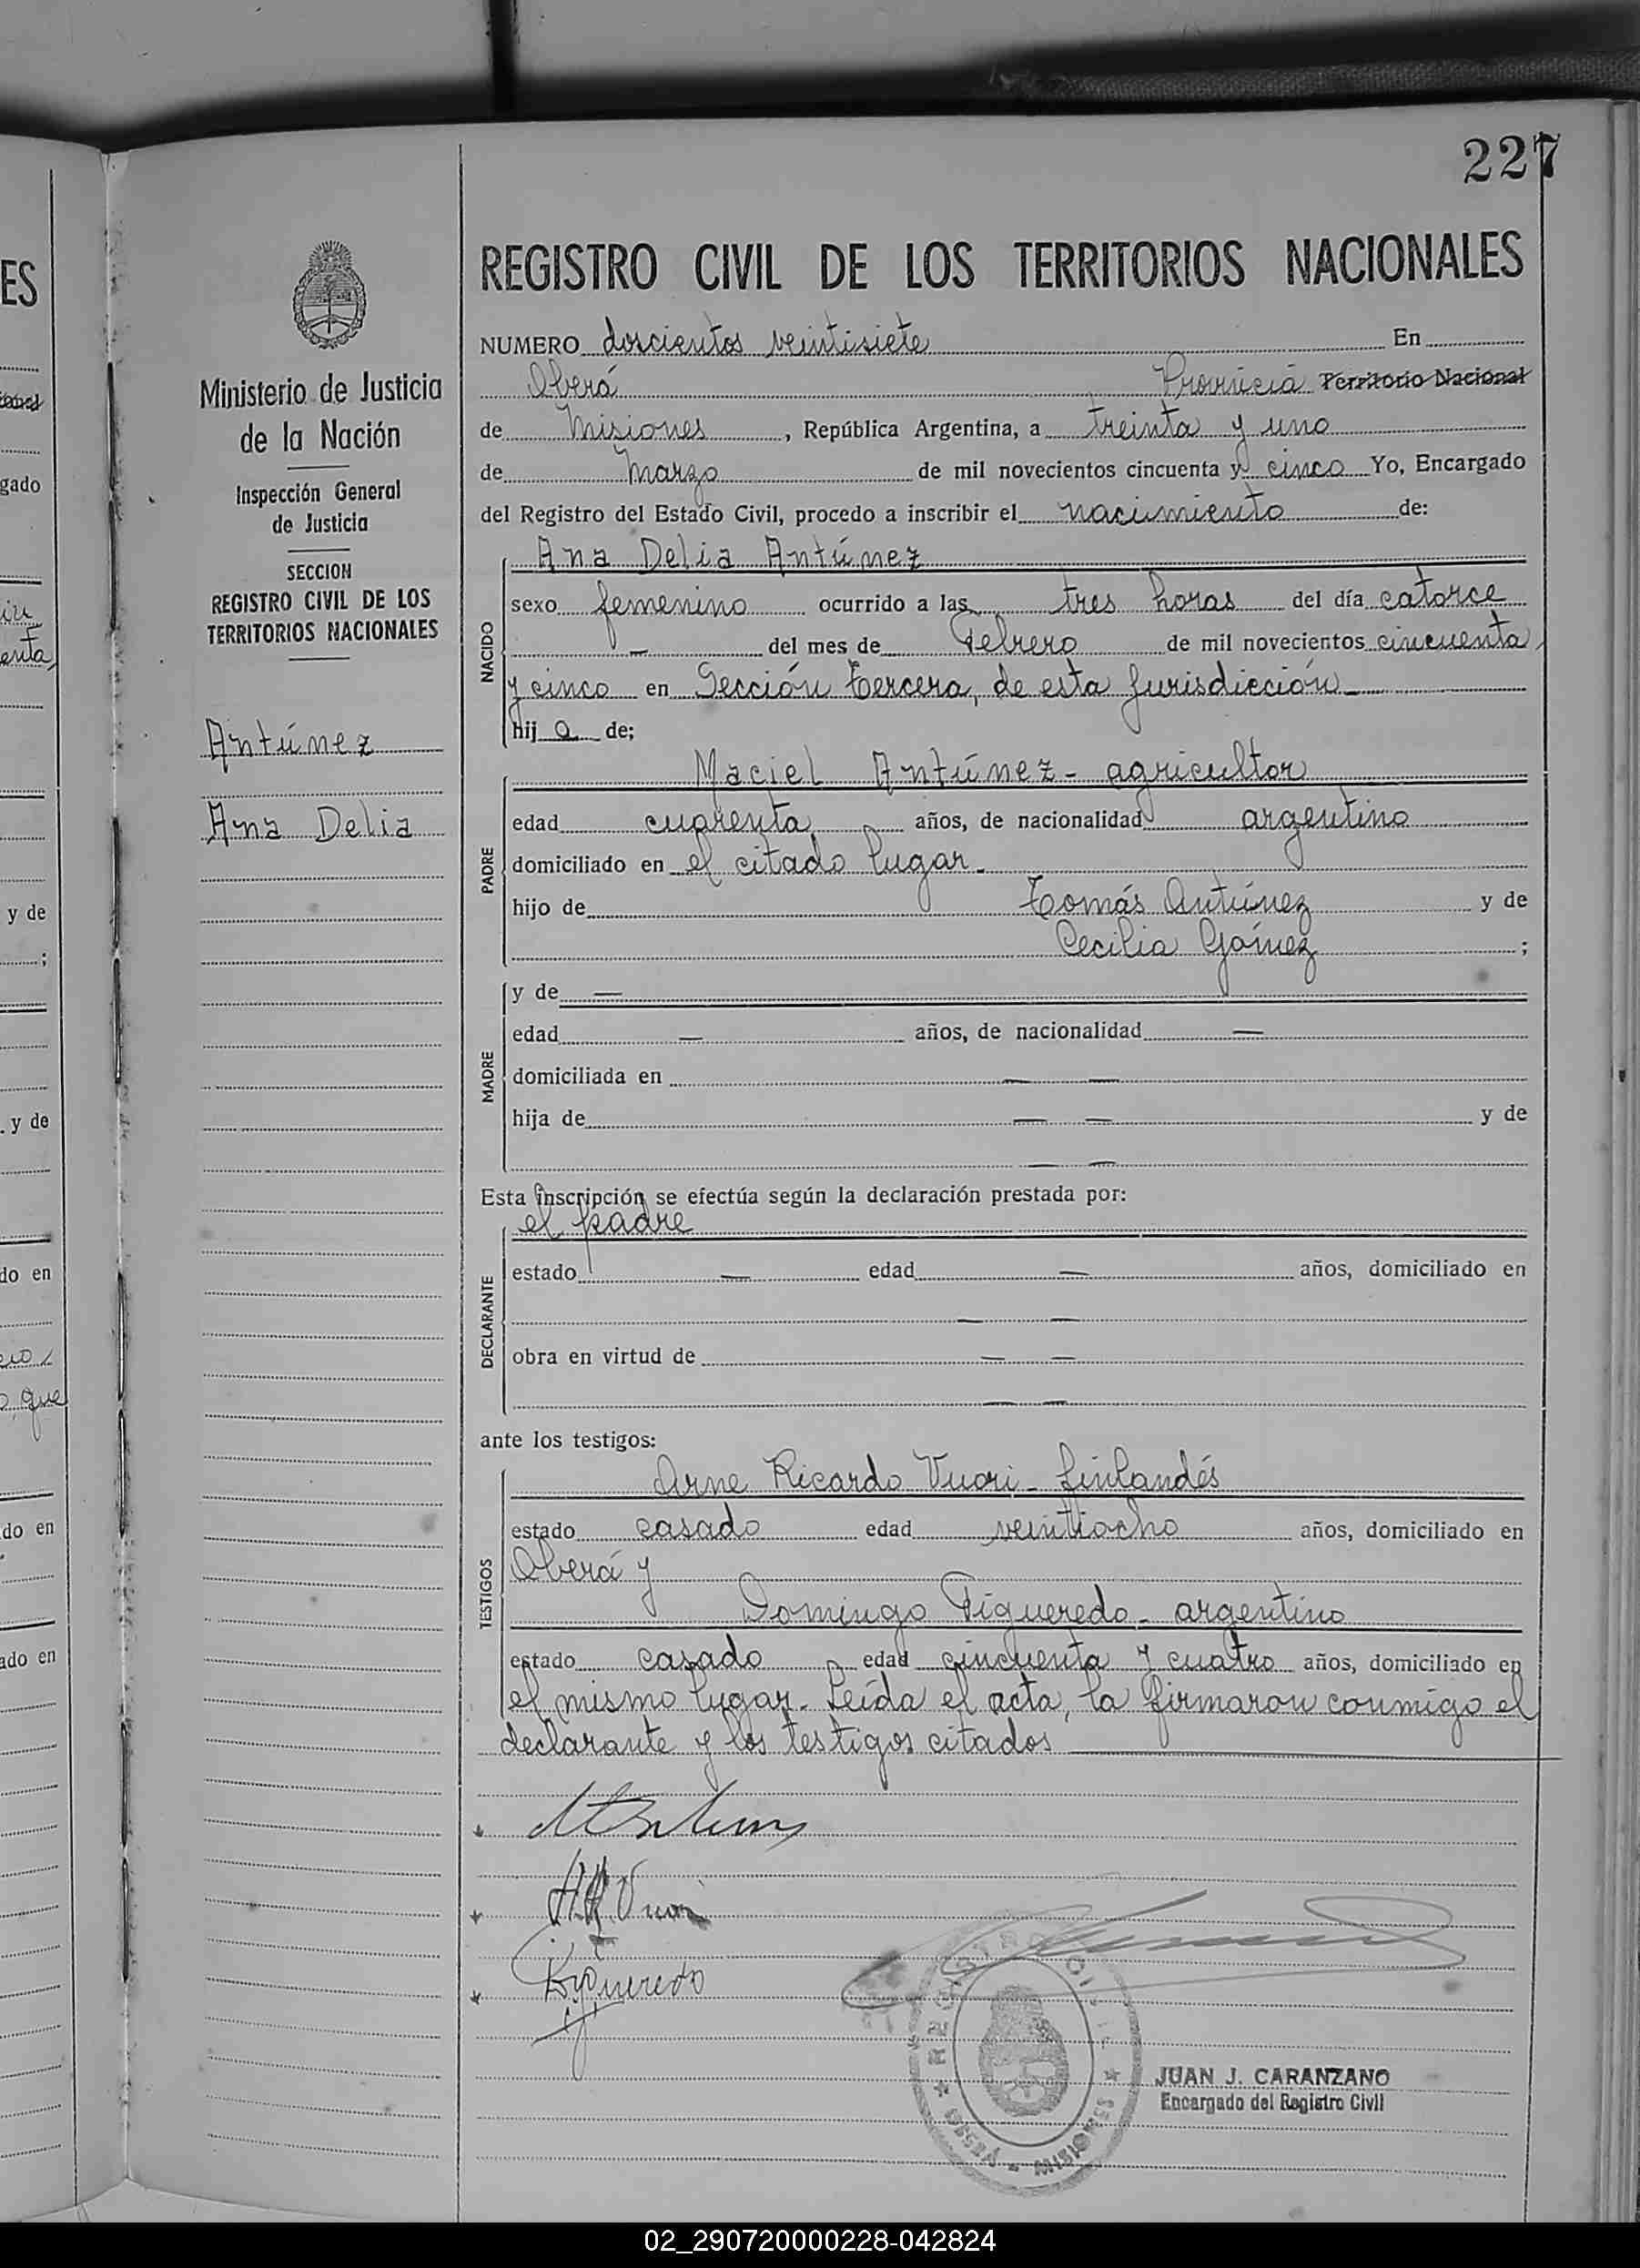 227
ES
REGISTRO CIVIL DE LOS TERRITORIOS NACIONALES
Ministerio de Justicia
de la Nación
Inspección General
de Justicia
SECCION
REGISTRO CIVIL DE LOS
TERRITORIOS NACIONALES
Antúnez
Ana Delia
NUMERO doscientos veintisiete En
Oberá Provincia Territorio Nacional
de Misiones, República Argentina, a treinta y uno
de Marzo de mil novecientos cincuenta y cinco Yo, Encargado
del Registro del Estado Civil, procedo a inscribir el nacimiento de:
NACIDO
Ana Delia Antúnez
sexo femenino ocurrido a las tres horas del día catorce
— del mes de Febrero de mil novecientos cincuenta
y cinco en Sección tercera, de esta jurisdicción
hija de;
PADRE
Maciel Antúnez - agricultor
edad cuarenta años, de nacionalidad argentino
domiciliado en el citado lugar.
hijo de Tomás Antúnez y de
Cecilia Gómez ;
MADRE
y de —
edad — años, de nacionalidad —
domiciliada en — —
hija de — — y de
— —
Esta inscripción se efectúa según la declaración prestada por:
DECLARANTE
el padre
estado — edad — años, domiciliado en
— —
obra en virtud de — —
— —
ante los testigos:
TESTIGOS
Arne Ricardo Vuori - finlandés
estado casado edad veintiocho años, domiciliado en
Oberá y
Domingo Figueredo - argentino
estado casado edad cincuenta y cuatro años, domiciliado en
el mismo lugar - Leída el acta, la firmaron conmigo el
declarante y los testigos citados
Vuori
Figueredo
REGISTRO CIVIL
OBERÁ - MISIONES
JUAN J. CARANZANO
Encargado del Registro Civil
gado
y de
;
y de
do en
que
do en
ado en
02_290720000228-042824